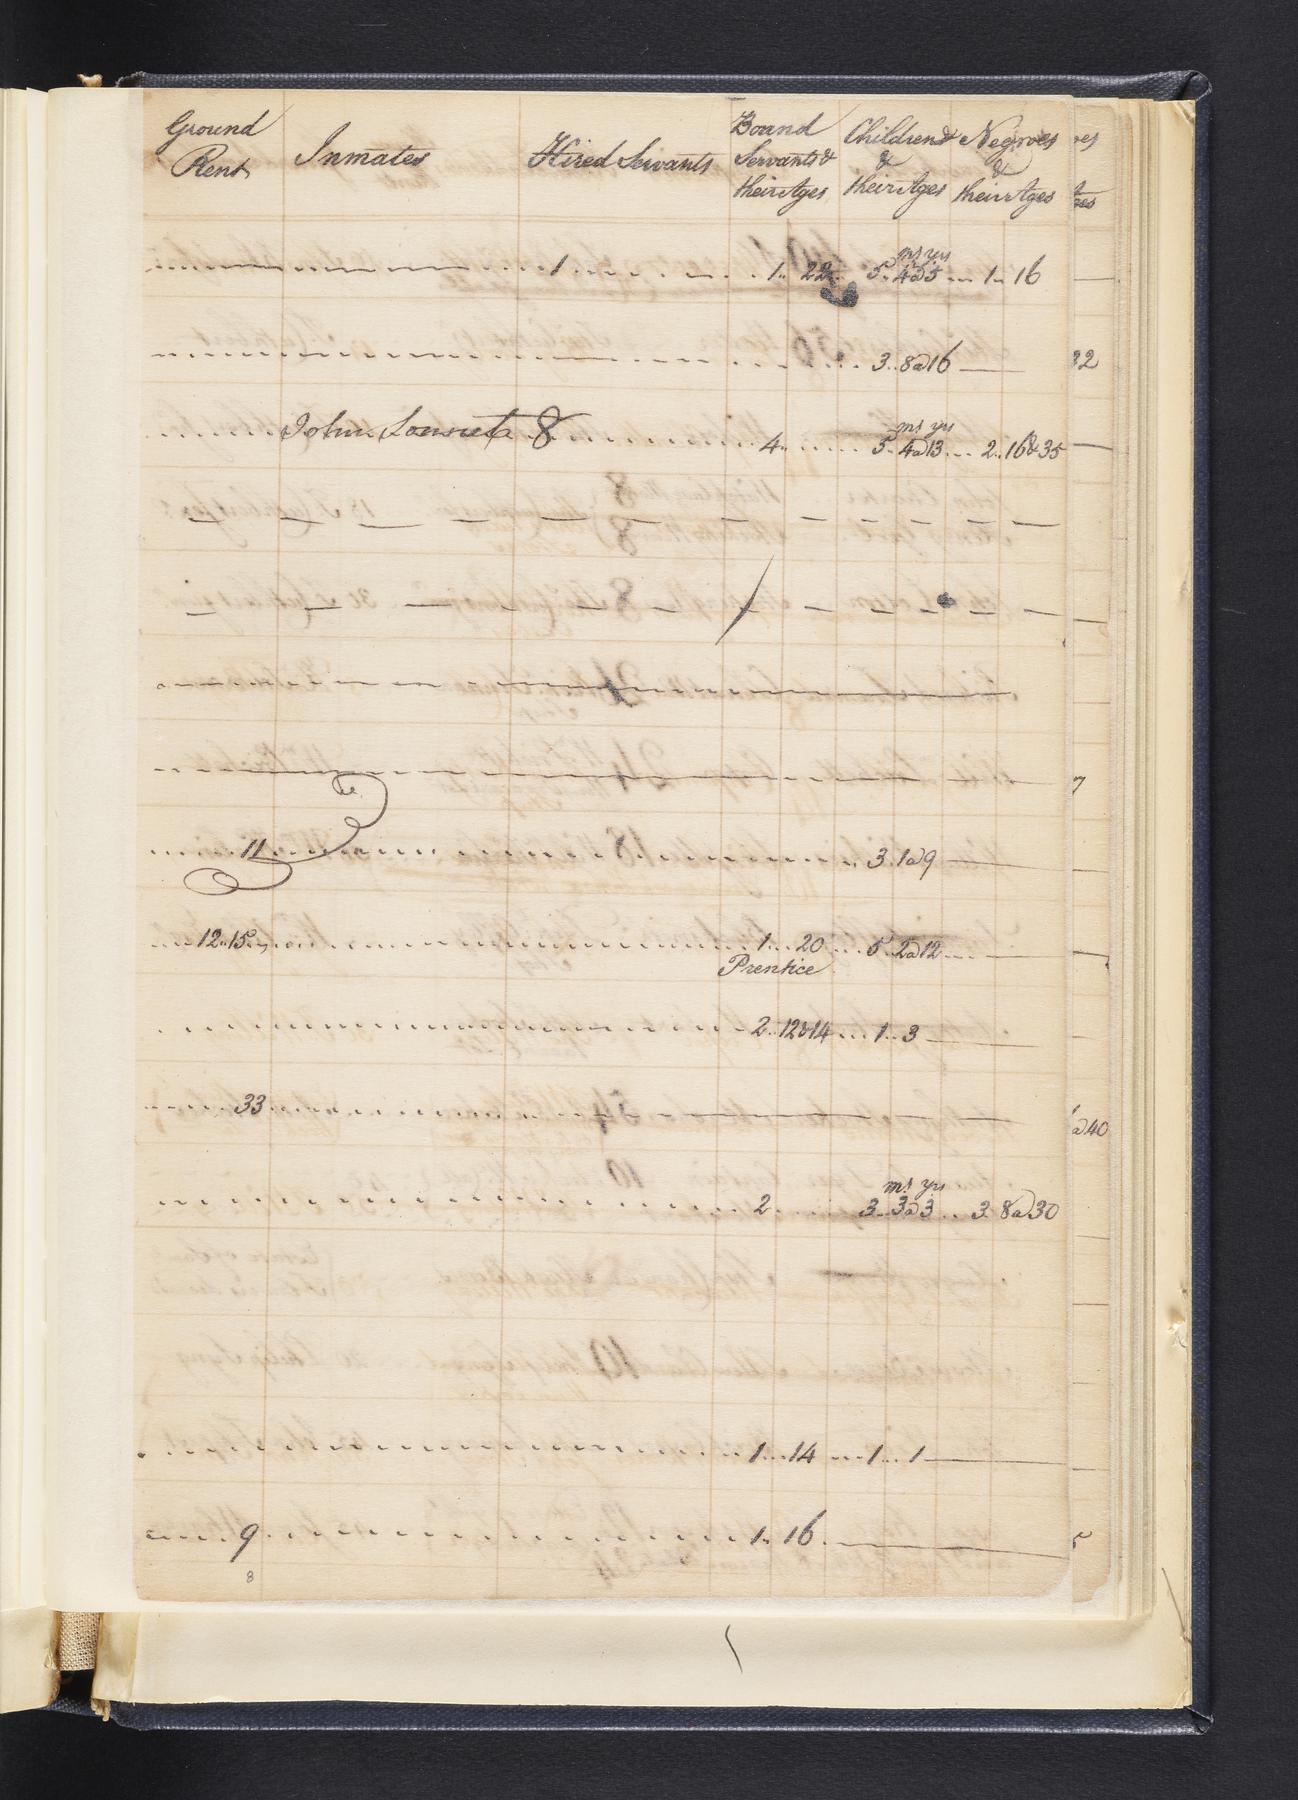 Ground Rent Inmates Hired Servants Bound Servants & their Ages Children & their Ages Negroes & their Ages
ms yrs
1 1 .. 22 5 .. 4 a 5 1 .. 16
3 .. 8 a 16
ms yrs
John 8 4 5 .. 4 a 13 2 .. 16 & 35
11 3 .. 1 a 9
12 .. 15 1 .. 20 5 .. 2 a 12
Prentice
2 .. 12 & 14 1 .. 3
33
ms yrs
2 3 .. 3 a 3 3 .. 8 a 30
1 .. 14 1 .. 1
9 1 .. 16
8